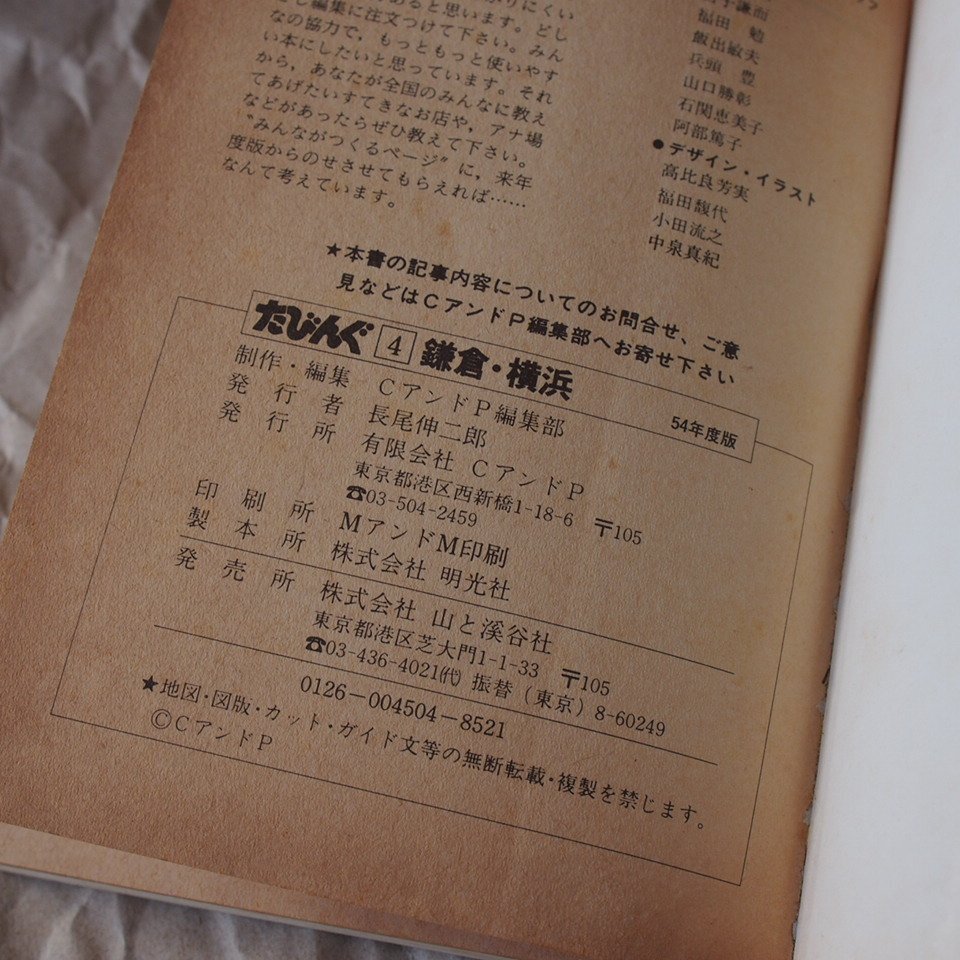 あると思います。どし
どし編集に注文つけて下さい。みん
なの協力で、もっともっと使いやす
い本にしたいと思っています。それ
から、あなたが全国のみんなに教え
てあげたいすてきなお店や、アナ場
などがあったらぜひ教えて下さい。
〝みんながつくるページ〟に、来年
度版からのせさせてもらえれば……
なんて考えています。
福田 勉
飯出敏夫
兵頭 豊
山口勝彰
石関恵美子
阿部篤子
●デザイン・イラスト
高比良芳実
福田馥代
小田流之
中泉真紀
★本書の記事内容についてのお問合せ、ご意
見などはCアンドP編集部へお寄せ下さい
たびんぐ 4 鎌倉・横浜 54年度版
制作・編集 CアンドP編集部
発行者 長尾伸二郎
発行所 有限会社 CアンドP
東京都港区西新橋1-18-6 〒105
☎03-504-2459
印刷所 MアンドM印刷
製本所 株式会社 明光社
発売所 株式会社 山と溪谷社
東京都港区芝大門1-1-33 〒105
☎03-436-4021㈹ 振替（東京）8-60249
0126-004504-8521
★地図・図版・カット・ガイド文等の無断転載・複製を禁じます。
©CアンドP